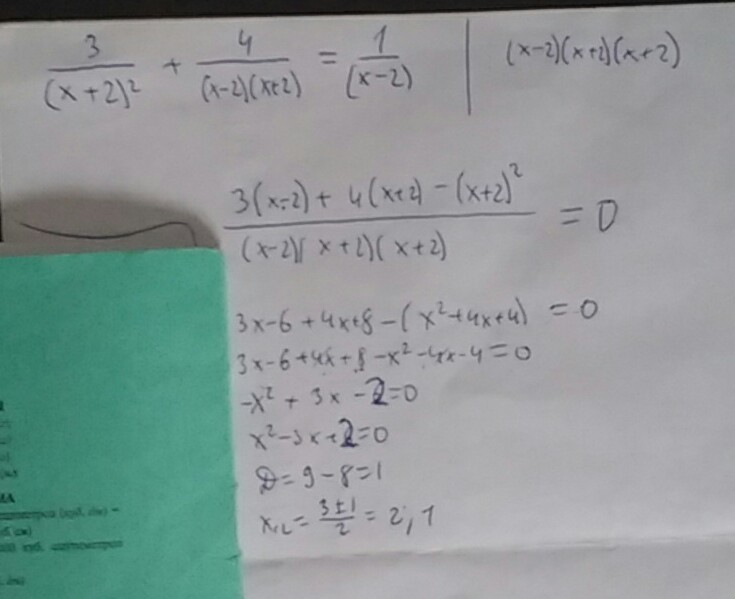 3/(x+2)² + 4/((x-2)(x+2)) = 1/(x-2) | (x-2)(x+2)(x+2)
(3(x-2) + 4(x+2) - (x+2)²)/((x-2)(x+2)(x+2)) = 0
3x-6+4x+8-(x²+4x+4) = 0
3x-6+4x+8-x²-4x-4=0
-x²+3x-2=0
x²-3x+2=0
D=9-8=1
x₁,₂=(3±1)/2=2;1